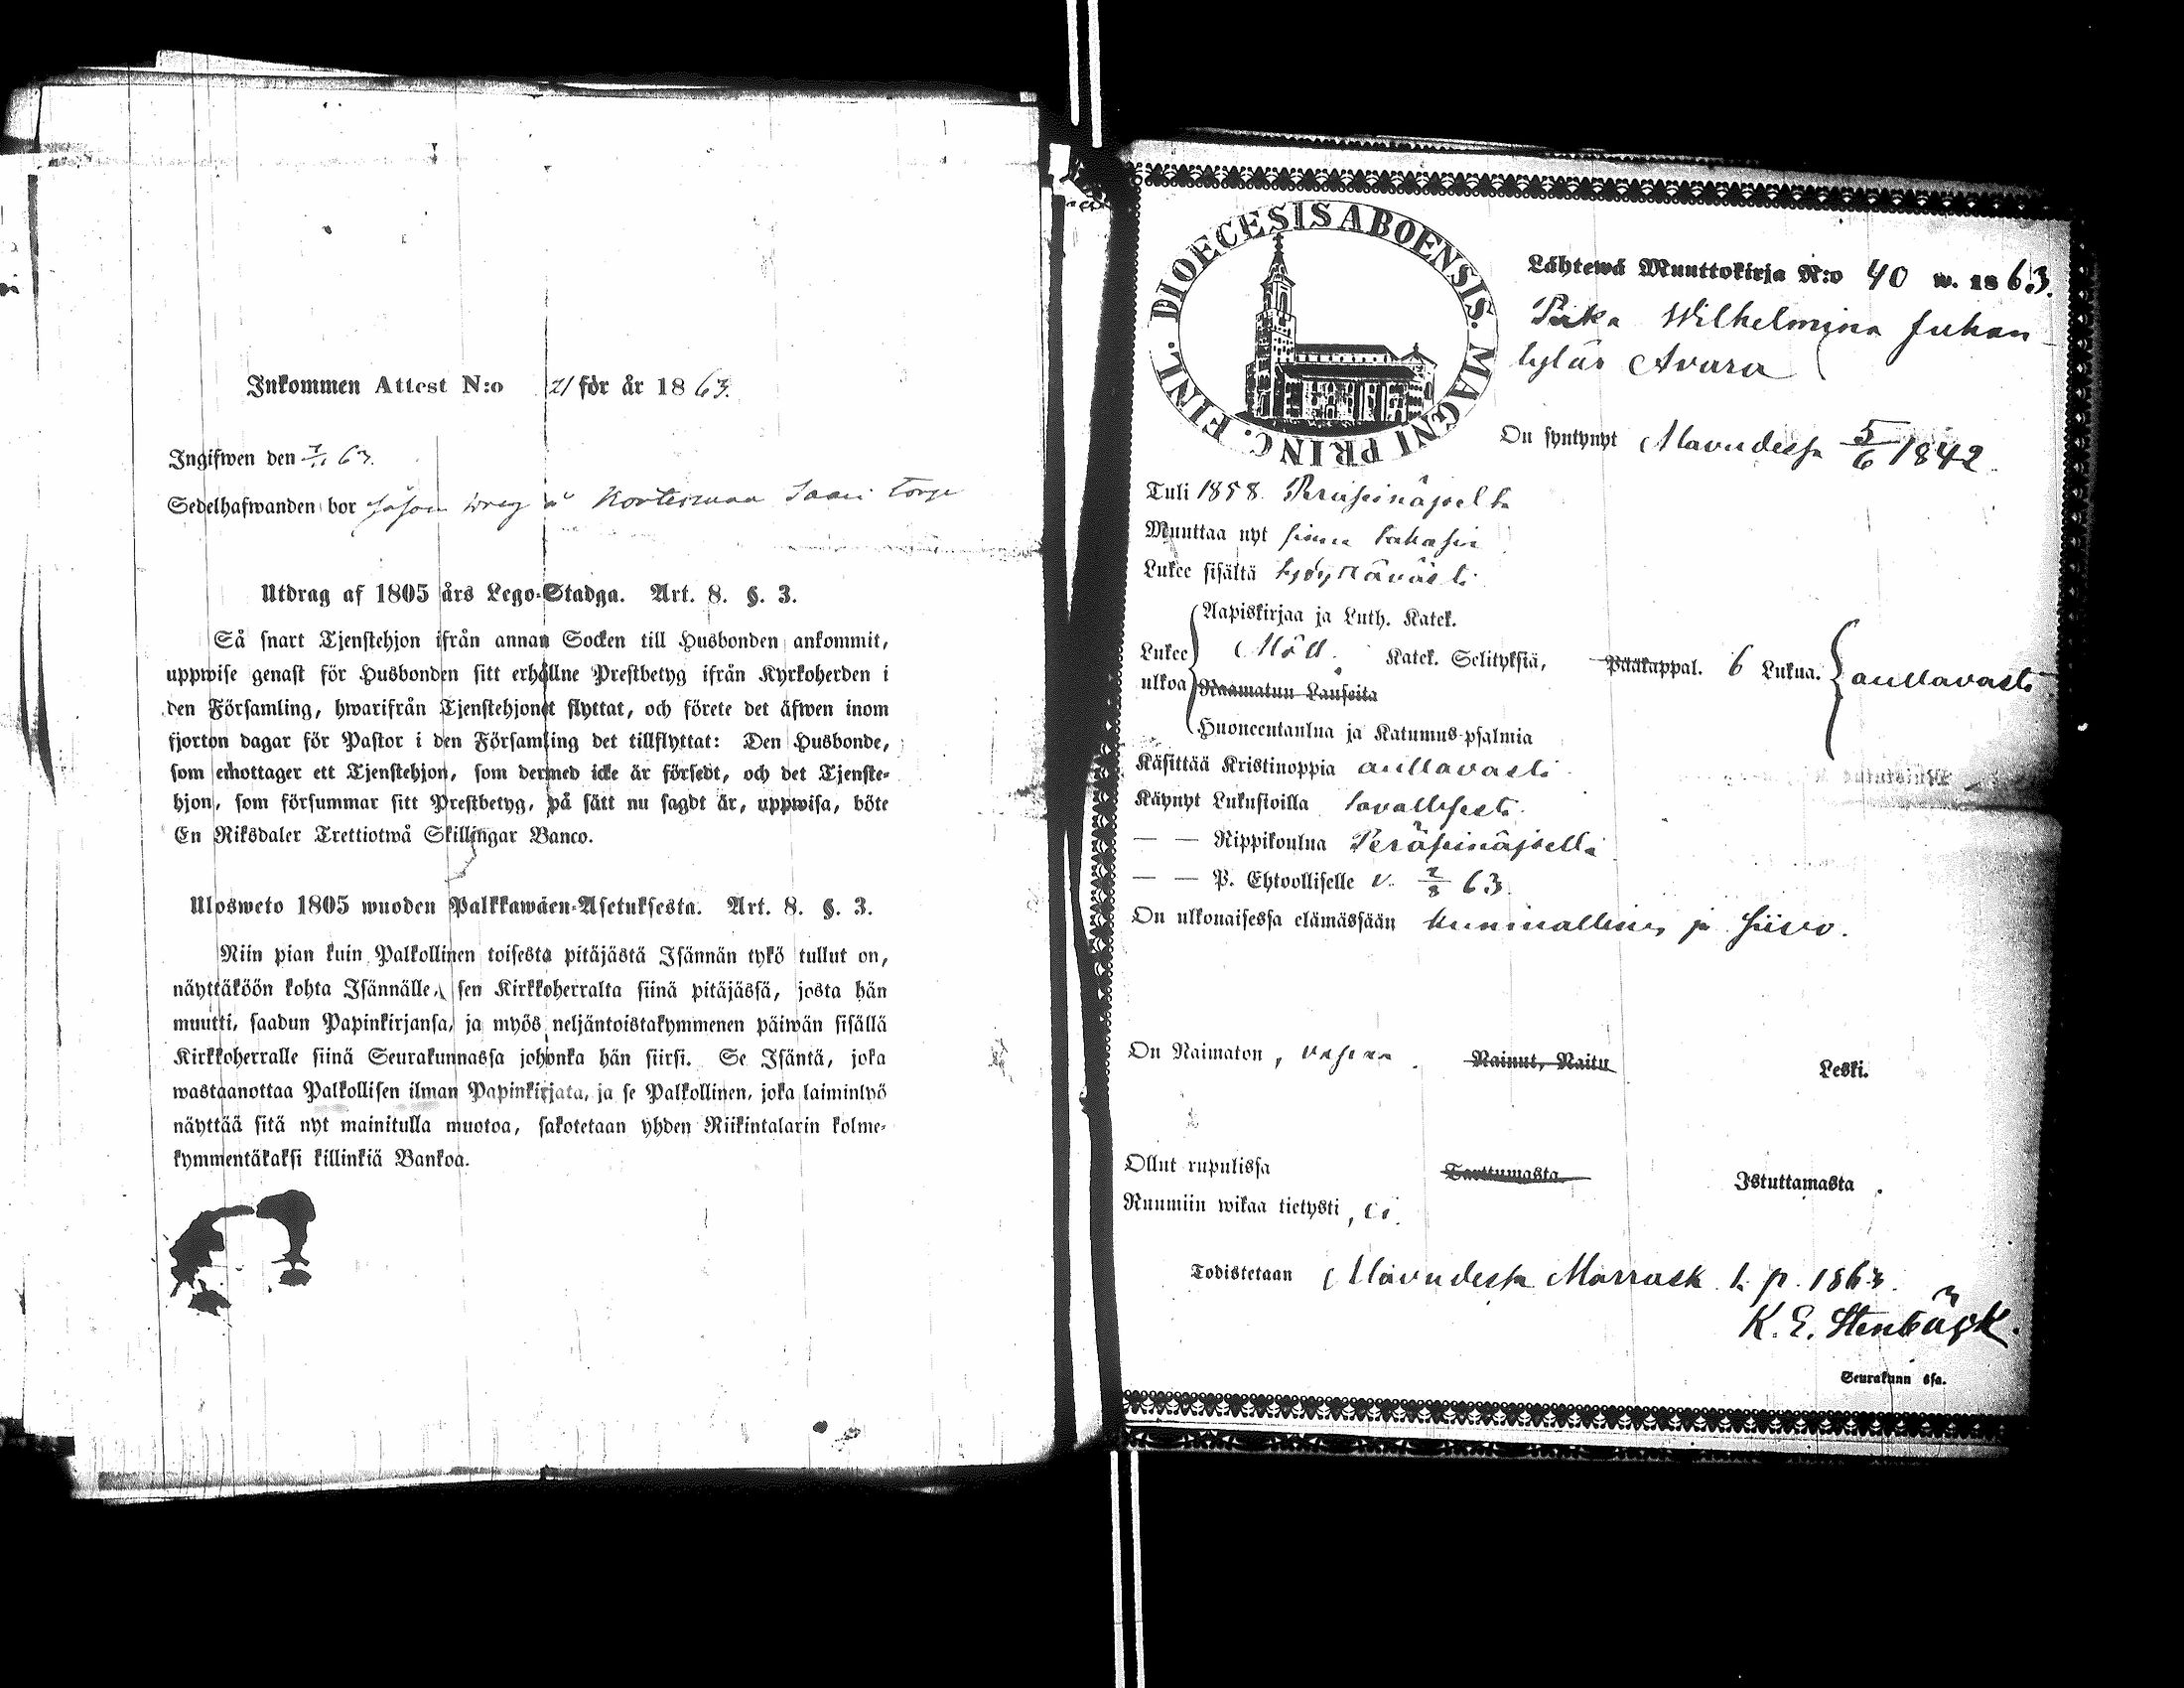 Inkommen Attest N:o 21 för år 1863.
Ingifwen den 7/11 63.
Sedelhafwanden bor såsom dräng å Kortesmaa Saari torp
Utdrag af 1805 års Lego-Stadga. Art. 8. §. 3.
Så snart Tjenstehjon ifrån annan Socken till Husbonden ankommit,
uppwise genast för Husbonden sitt erhållne Prestbetyg ifrån Kyrkoherden i
den Församling, hwarifrån Tjenstehjonet flyttat, och förete det äfwen inom
fjorton dagar för Pastor i den Församling det tillflyttat: Den Husbonde,
som emottager ett Tjenstehjon, som dermed icke är försedt, och det Tjenste-
hjon, som försummar sitt Prestbetyg, på sätt nu sagdt är, uppwisa, böte
En Riksdaler Trettiotwå Skillingar Banco.
Ulosweto 1805 wuoden Palkkawäen-Asetuksesta. Art. 8. §. 3.
Niin pian kuin Palkollinen toisesta pitäjästä Isännän tykö tullut on,
näyttäköön kohta Isännälle, sen Kirkkoherralta siinä pitäjässä, josta hän
muutti, saadun Papinkirjansa, ja myös neljäntoistakymmenen päiwän sisällä
Kirkkoherralle siinä Seurakunnassa johonka hän siirsi. Se Isäntä, joka
wastaanottaa Palkollisen ilman Papinkirjata, ja se Palkollinen, joka laiminlyö
näyttää sitä nyt mainitulla muotoa, sakotetaan yhden Riikintalarin kolme-
kymmentäkaksi killinkiä Bankoa.
DIOECESIS ABOENSIS. MAGNI PRINC. FINL.
Lähtewä Muuttokirja N:o 40 w. 1863.
Piika Wilhelmina Juhan
tytär Avara
On syntynyt Alavudessa 5/6 1842.
Tuli 1858 Peräseinäjoelta
Muuttaa nyt sinne takasin
Lukee sisältä hyöyttävästi
Aapiskirjaa ja Luth. Katek.
Lukee ulkoa
Katek. Selityksiä, Pääkappal. 6 Lukua. auttavasti
Raamatun Lauseita
Huoneentaulua ja Katumus-psalmia
Käsittää Kristinoppia auttavasti
Käynyt Lukusioilla tavallisesti
— — Rippikoulua Peräseinäjoella
— — P. Ehtoolliselle v. 2/8 63.
On ulkonaisessa elämässään kunniallinen ja siivo.
On Naimaton, vapaa. Nainut, Naitu Leski.
Ollut rupulissa Tarttumasta Istuttamasta.
Ruumiin wikaa tietysti, ei.
Todistetaan Alavudessa Marrask. 1. p. 1863.
K. E. Stenbäck.
Seurakunn ssa.